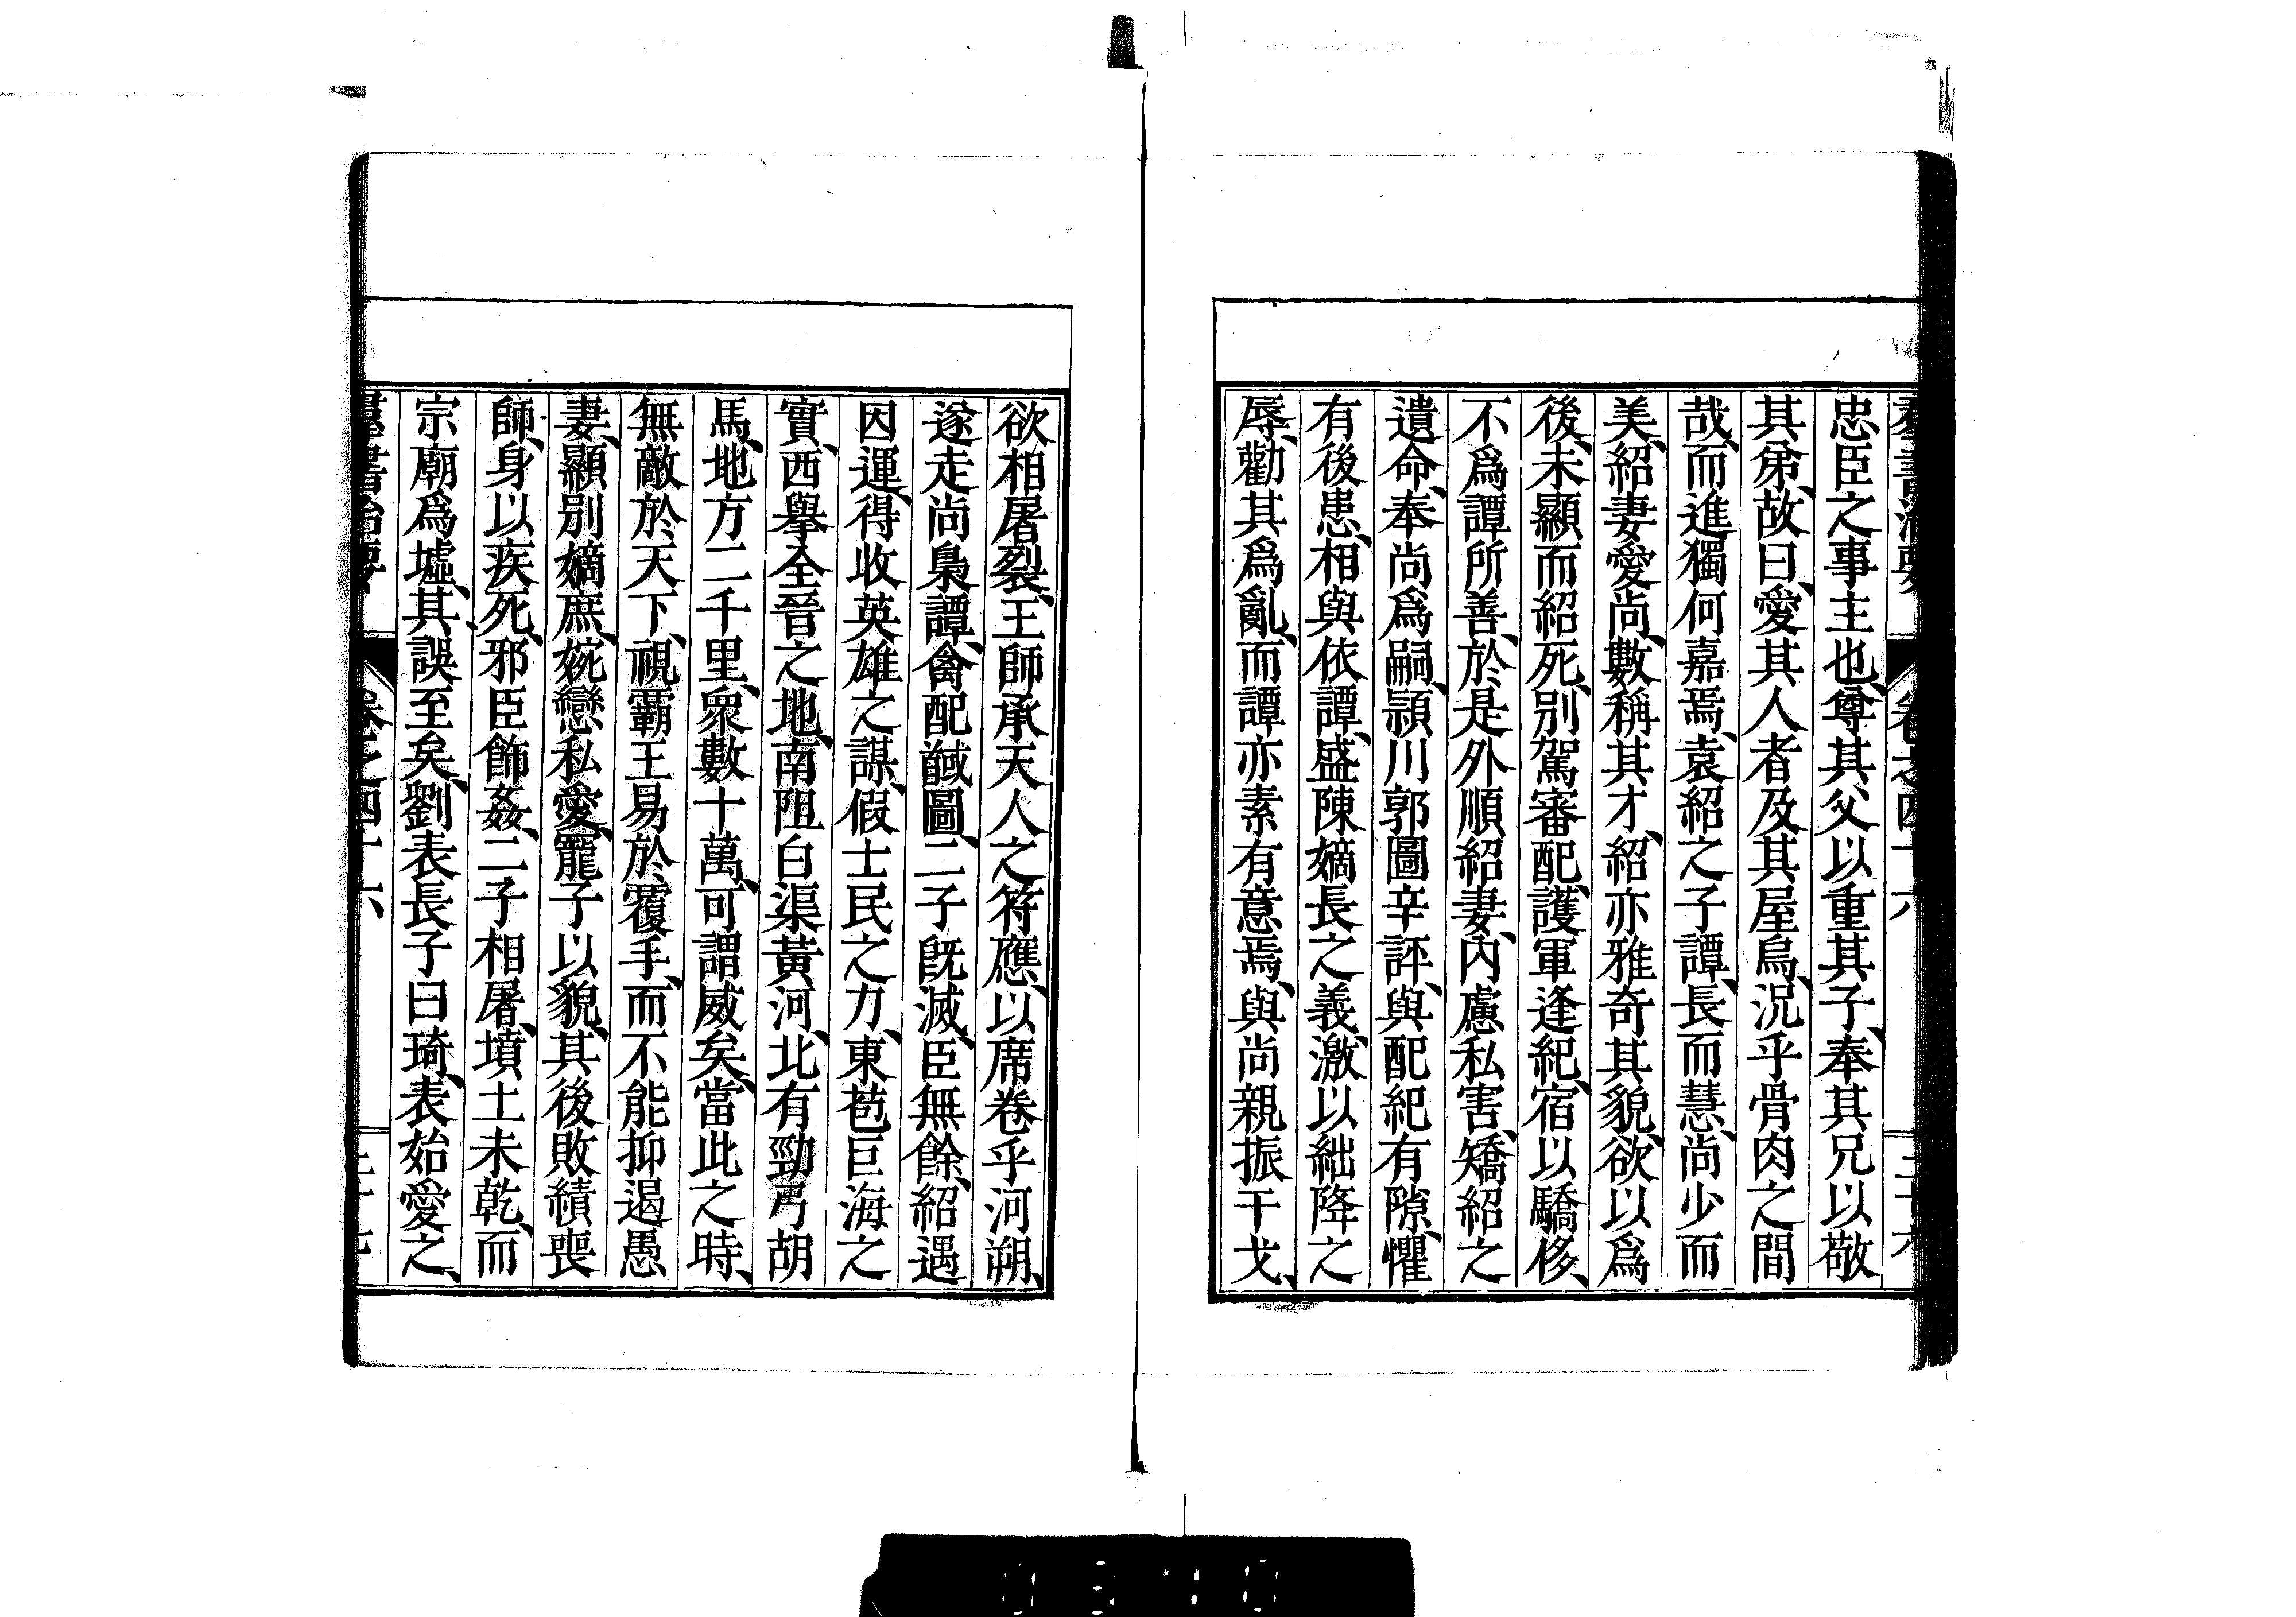 羣書治要 卷之四十六 三十六
忠臣之事主也、尊其父以重其子、奉其兄以敬
其弟、故曰、愛其人者及其屋烏、況乎骨肉之間
哉、而進獨何嘉焉、袁紹之子譚、長而慧、尚少而
美、紹妻愛尚、數稱其才、紹亦雅奇其貌、欲以爲
後、未顯而紹死、別駕審配、護軍逢紀、宿以驕侈、
不爲譚所善、於是外順紹妻、內慮私害、矯紹之
遺命、奉尚爲嗣、潁川郭圖辛評、與配紀有隙、懼
有後患、相與依譚、盛陳嫡長之義、激以絀降之
辱、勸其爲亂、而譚亦素有意焉、與尚親振干戈、
欲相屠裂、王師承天人之符應、以席卷乎河朔、
遂走尚梟譚、禽配馘圖、二子既滅、臣無餘、紹遇
因運、得收英雄之謀、假士民之力、東苞巨海之
實、西舉全晉之地、南阻白渠黃河、北有勁弓胡
馬、地方二千里、衆數十萬、可謂威矣、當此之時、
無敵於天下、視霸王易於覆手、而不能抑遏愚
妻、顯別嫡庶、婉戀私愛、寵子以貌、其後敗績喪
師、身以疾死、邪臣飾姦、二子相屠、墳土未乾、而
宗廟爲墟、其誤至矣、劉表長子曰琦、表始愛之、
羣書治要 卷之四十六 三十七